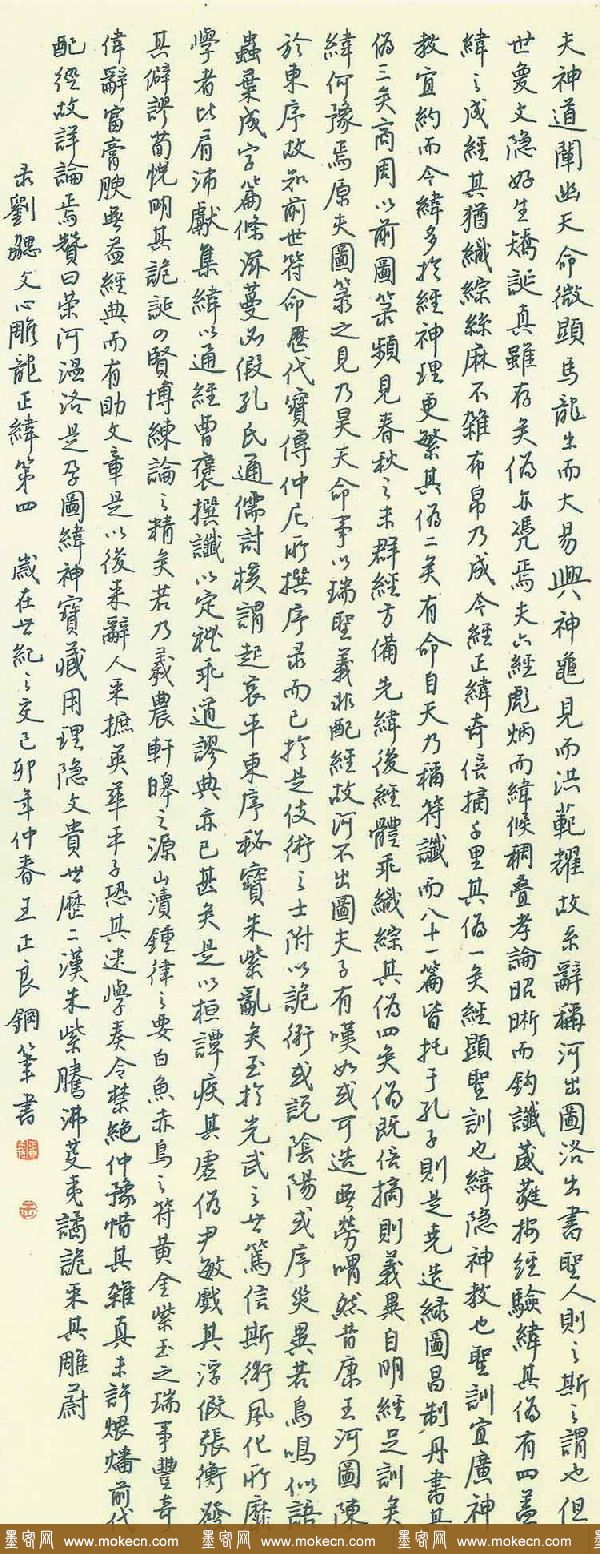 夫神道闡幽天命微顯馬龍出而大易興神龜見而洪範耀故系辭稱河出圖洛出書聖人則之斯之謂也但
世敻文隐好生矯誕真雖存矣偽亦憑焉夫六經彪炳而緯候稠叠孝論昭晰而鈎讖葳蕤按經驗緯其偽有四蓋
緯之成經其猶織綜絲麻不雜布帛乃成今經正緯奇倍擿千里其偽一矣經顯聖訓也緯隐神教也聖訓宜廣神
教宜約而今緯多於經神理更繁其偽二矣有命自天乃稱符讖而八十一篇皆托于孔子則是堯造綠圖昌制丹書其
偽三矣商周以前圖箓頻見春秋之末群經方備先緯後經體乖織綜其偽四矣偽既倍摘則義異自明經足訓矣
緯何豫焉原夫圖箓之見乃昊天命事以瑞聖義非配經故河不出圖夫子有嘆如或可造無勞喟然昔康王河圖陳
於東序故知前世符命歷代寶傳仲尼所撰序录而已於是伎術之士附以詭術或説陰陽或序災異若鳥鳴似語
蟲葉成字篇條滋蔓必假孔氏通儒討核謂起哀平東序秘寶朱紫亂矣至於光武之世篤信斯術風化所靡
學者比肩沛獻集緯以通經曹褒撰讖以定禮乖道謬典亦已甚矣是以桓譚疾其虛偽尹敏戲其浮假張衡發
其僻謬荀悅明其詭誕四賢博練論之精矣若乃羲農軒皞之源山瀆鍾律之要白魚赤烏之符黄金紫玉之瑞事豐奇
偉辭富膏腴無益經典而有助文章是以後来辭人采摭英華平子恐其迷學奏令禁絕仲豫惜其雜真未許煨燔前代
配經故詳論焉贊曰榮河温洛是孕圖緯神寶藏用理隐文貴世歷二漢朱紫騰沸芟夷譎詭采其雕蔚
录劉勰文心雕龍正緯第四 歲在世紀之交己卯年仲春王正良鋼筆書
墨客网 www.mokecn.com 墨客网 www.mokecn.com 墨客网 www.mokecn.com 墨客网 www.mokecn.com